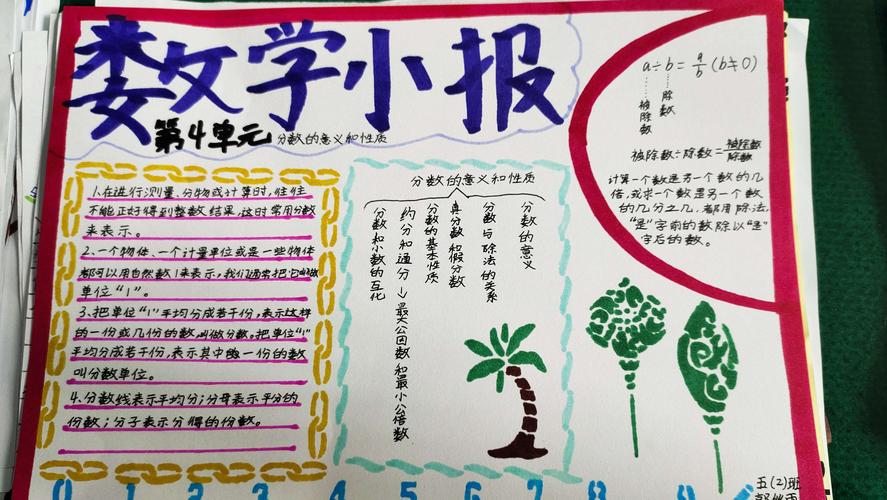 数学小报
第4单元 分数的意义和性质
1.在进行测量、分物或计算时,往往
不能正好得到整数结果,这时常用分数
来表示。
2、一个物体、一个计量单位或是一些物体
都可以用自然数1来表示,我们通常把它叫做
单位“1”。
3、把单位“1”平均分成若干份,表示这样
的一份或几份的数,叫做分数。把单位“1”
平均分成若干份,表示其中的一份的数
叫分数单位。
4、分数线表示平均分;分母表示平分的
份数;分子表示分得的份数。
分数的意义和性质
分数的意义
分数与除法的关系
真分数和假分数
分数的基本性质
约分和通分→最大公因数和最小公倍数
分数和小数的互化
a÷b=a/b(b≠0)
被除数
除数
被除数÷除数=被除数/除数
计算一个数是另一个数的几
倍,或求一个数是另一个数
的几分之几,都用除法,
“是”字前的数除以“是”
字后的数。
0 1 2 3 4 5 6 7 8 9
五(2)班